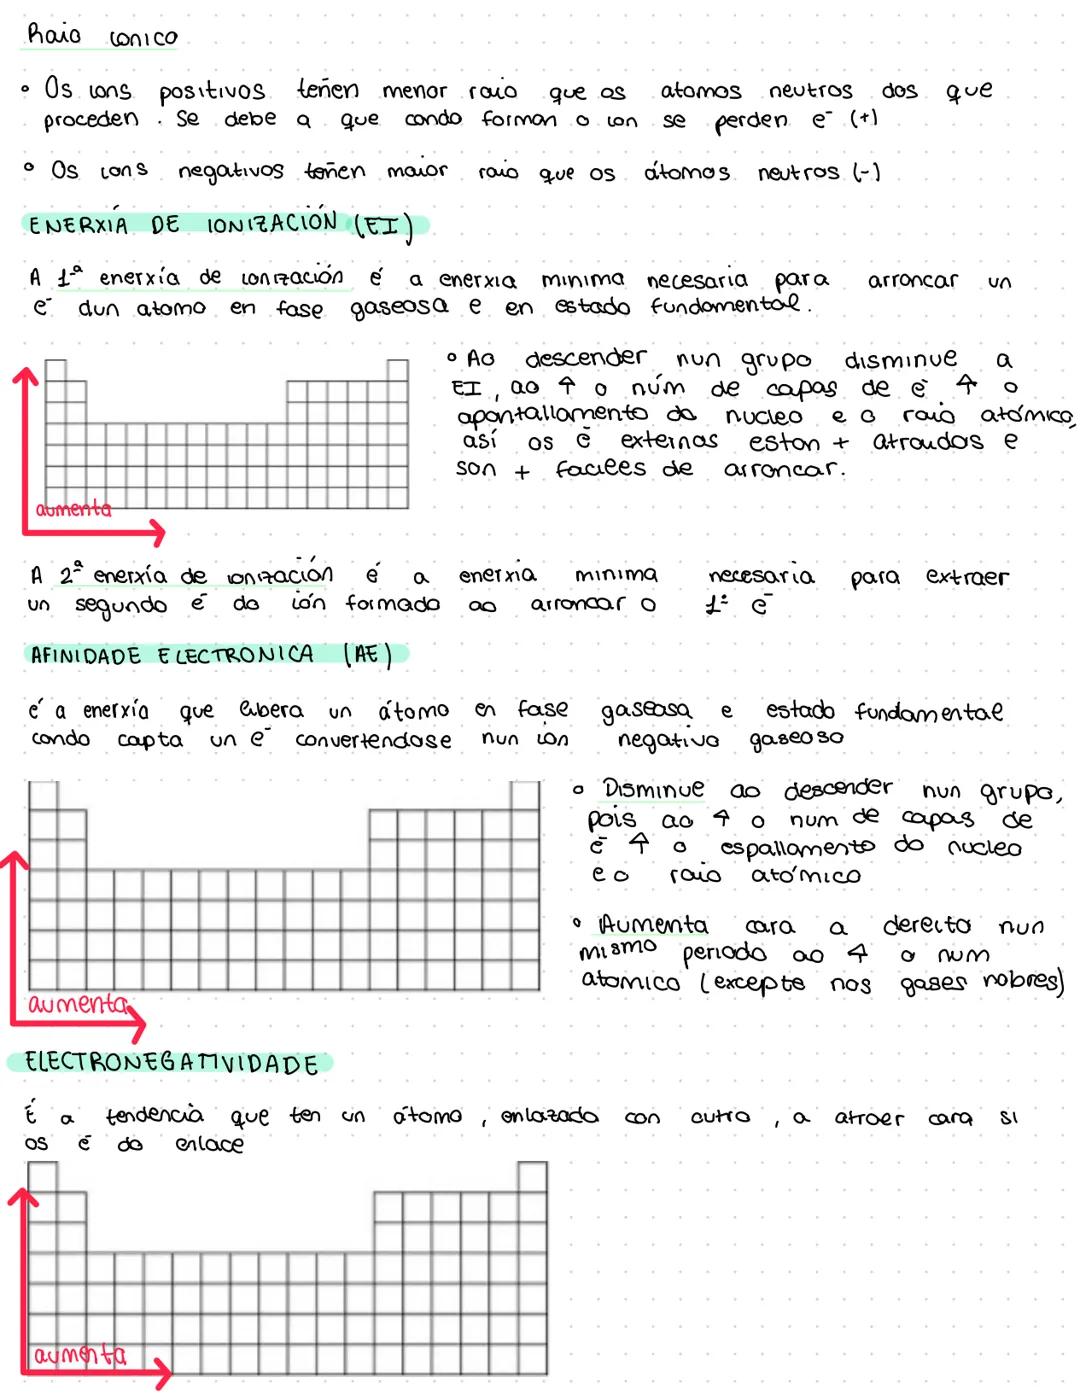 Raio iónico
• Os ións positivos teñen menor raio que os atomos neutros dos que
proceden. Se debe a que cando forman o ion se perden e⁻ (+)
• Os ións negativos teñen maior raio que os átomos neutros (-)
ENERXÍA DE IONIZACIÓN (EI)
A 1ª enerxía de ionización é a enerxia minima necesaria para arroncar un
e⁻ dun atomo en fase gaseosa e en estado fundamental.
• Ao descender nun grupo disminue a
EI, ao ↑ o núm de capas de e⁻ ↑ o
apantallamento do nucleo e o raio atómico,
así os e⁻ externos estan + atraudos e
son + faciles de arroncar.
aumenta
A 2ª enerxía de ionización é a enerxia minima necesaria para extraer
un segundo e⁻ do ión formado ao arroncar o 1º e⁻
AFINIDADE ELECTRONICA (AE)
é a enerxía que libera un átomo en fase gaseosa e estado fundamental
cando capta un e⁻ convertendose nun ión negativo gaseoso
• Disminue ao descender nun grupo,
pois ao ↑ o num de capas de
e⁻ ↑ o espallamento do nucleo
e o raio atómico
• Aumenta cara a derecto nun
mismo periodo ao ↑ o num
atomico (excepto nos gases nobres)
aumenta
ELECTRONEGATIVIDADE
É a tendencia que ten un átomo, enlazado con outro, a atraer cara si
os e⁻ do enlace
aumenta